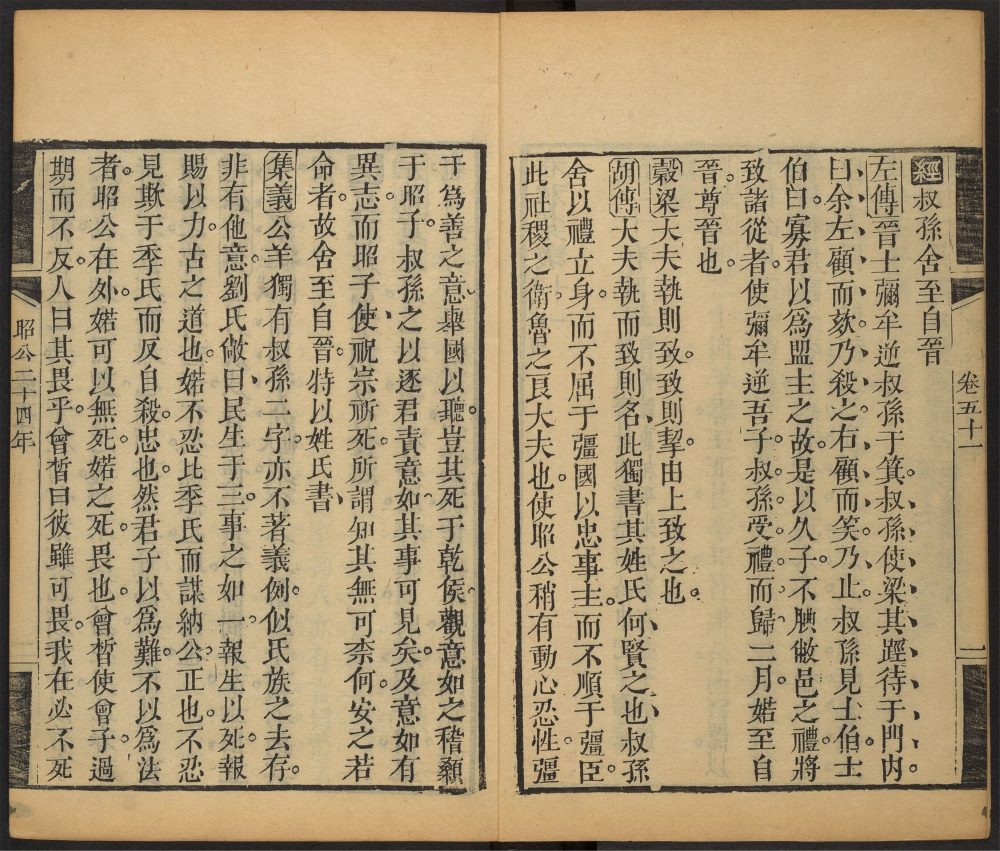 卷五十一
一
經叔孫舍至自晉
左傳晉士彌牟逆叔孫于箕叔孫使梁其踁待于門內
曰余左顧而欬乃殺之右顧而笑乃止叔孫見士伯士
伯曰寡君以爲盟主之故是以久子不腆敝邑之禮將
致諸從者使彌牟逆吾子叔孫受禮而歸二月婼至自
晉尊晉也
穀梁大夫執則致致則挈由上致之也
胡傳大夫執而致則名此獨書其姓氏何賢之也叔孫
舍以禮立身而不屈于彊國以忠事主而不順于彊臣
此社稷之衛魯之良大夫也使昭公稍有動心忍性彊
于爲善之意舉國以聽豈其死于乾侯觀意如之稽顙
于昭子叔孫之以逐君責意如其事可見矣及意如有
異志而昭子使祝宗祈死所謂知其無可柰何安之若
命者故舍至自晉特以姓氏書
集義公羊獨有叔孫二字亦不著義例似氏族之去存
非有他意劉氏敞曰民生于三事之如一報生以死報
賜以力古之道也婼不忍比季氏而謀納公正也不忍
見欺于季氏而反自殺忠也然君子以爲難不以爲法
者昭公在外婼可以無死婼之死畏也曾晳使曾子過
期而不反人曰其畏乎曾晳曰彼雖可畏我在必不死
昭公二十四年